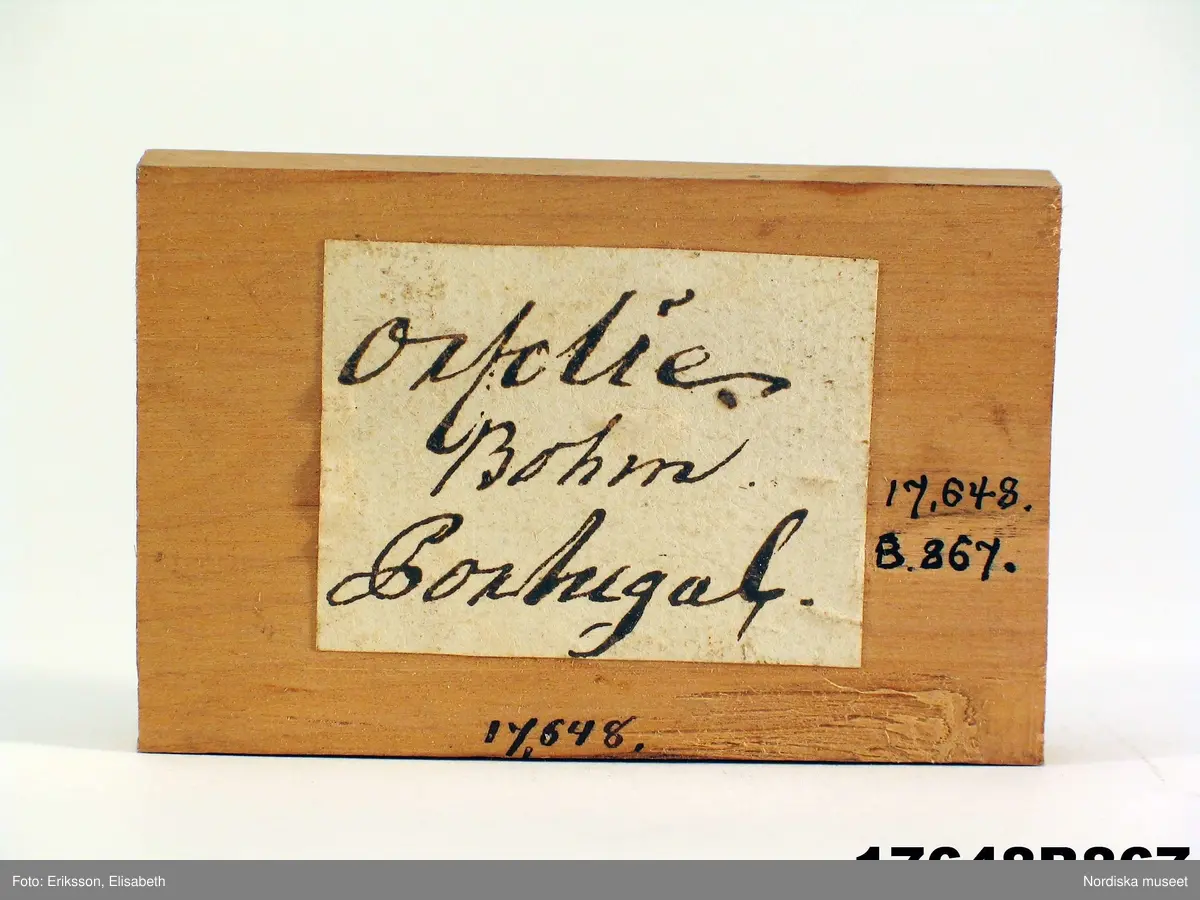 Bohm.
Portugal.
17,648.
B.867.
17,648.
17648B867
Foto: Eriksson, Elisabeth
Nordiska museet